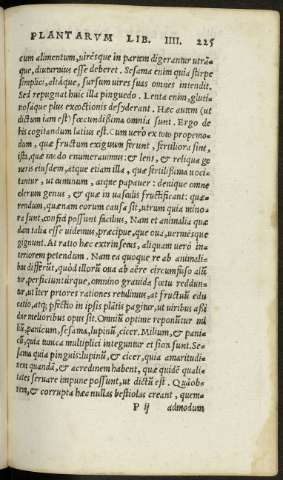 PLANTARVM LIB. IIII. 225
cum alimentum, uirésque in partem digerantur utrã-
que, diuturnius esse deberet. Sesama enim quia stirpe
simplici, altáque, sursum uires suas omnes intendit.
Sed repugnat huic illa pinguedo. Lenta enim, gluti-
nosaque plus excoctionis desyderant. Hæc autem (ut
dictum iam est) fœcundissima omnia sunt. Ergo de
his cogitandum latius est. Cum uero ex toto propemo-
dum, quæ fructum exiguum ferunt, fertiliora sint,
ista, quæ modo enumerauimus & lens, & reliqua ge
neris eiusdem, atque etiam illa, quæ fertilissima uoci
tantur, ut cuminum, atque papauer: denique omne
olerum genus, & quæ in uasculis fructificant: quæ-
rendum, quænam eorum causa sit, utrum quia mino-
ra sunt, confici possunt facilius, Nam et animalia quæ
dam talia esse uidemus, præcipue, quæ oua, uermésque
gignunt. At ratio hæc extrinsecus, aliquam uerò in-
teriorem petendum. Nam ea quoque re ab animali-
bus differũt, quòd illorũ oua ab aëre circumfuso alũ
tur, perficiuntúrque, omnino grauida fœtu reddun-
tur, ut liter priores rationes retulimus, at fructuũ edu
catio, atq; pfectio in ipsis plãtis pagitur, ut uiribus assi
due melioribus opus sit. Omniũ optime reponũtur mi
liũ, panicum, sesama, lupinũ, cicer. Milium, & pani-
cũ, quia tunica multiplici integuntur et sion sunt. Se-
sama quia pinguis: lupinũ, & cicer, quia amaritudi-
nem quandã, & acredinem habent, quæ quidẽ quali-
tates seruare impune possunt, ut dictũ est. Quãob-
rem, & corrupta hæc nullas bestiolas creant, quem-
P ij admodum